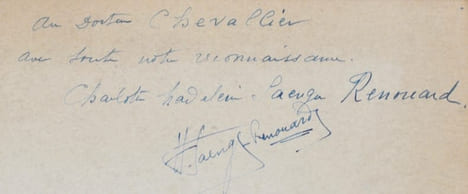 Au Docteur Chevallier
avec toute notre reconnaissance.
Charlotte Madeleine Saenger Renouard.
H. Saenger Renouard